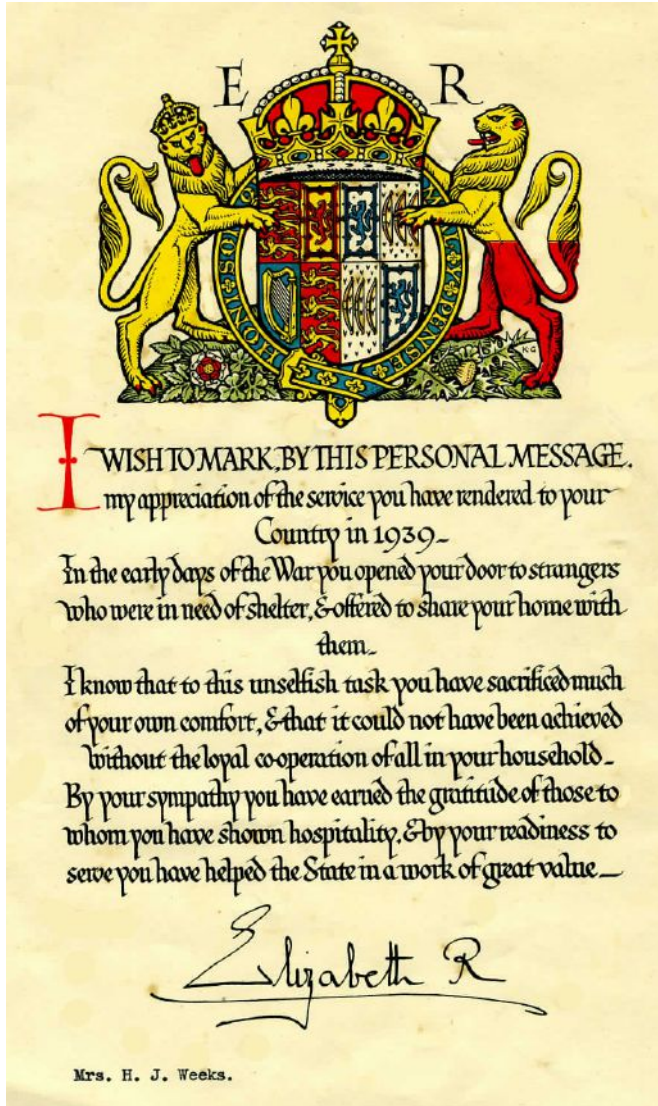 E R
HONI SOIT Q Y PENSE
KG
I WISH TO MARK, BY THIS PERSONAL MESSAGE,
my appreciation of the service you have rendered to your
Country in 1939_
In the early days of the War you opened your door to strangers
who were in need of shelter, & offered to share your home with
them_
I know that to this unselfish task you have sacrificed much
of your own comfort, & that it could not have been achieved
without the loyal co-operation of all in your household_
By your sympathy you have earned the gratitude of those to
whom you have shown hospitality, & by your readiness to
serve you have helped the State in a work of great value_
Elizabeth R
Mrs. H. J. Weeks.